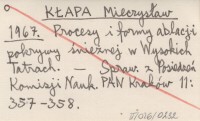 KŁAPA Mieczysław
1967. Procesy i formy ablacji
pokrywy śnieżnej w Wysokich
Tatrach. — Spraw. z Posiedzeń
Komisji Nauk. PAN Kraków 11:
357-358.